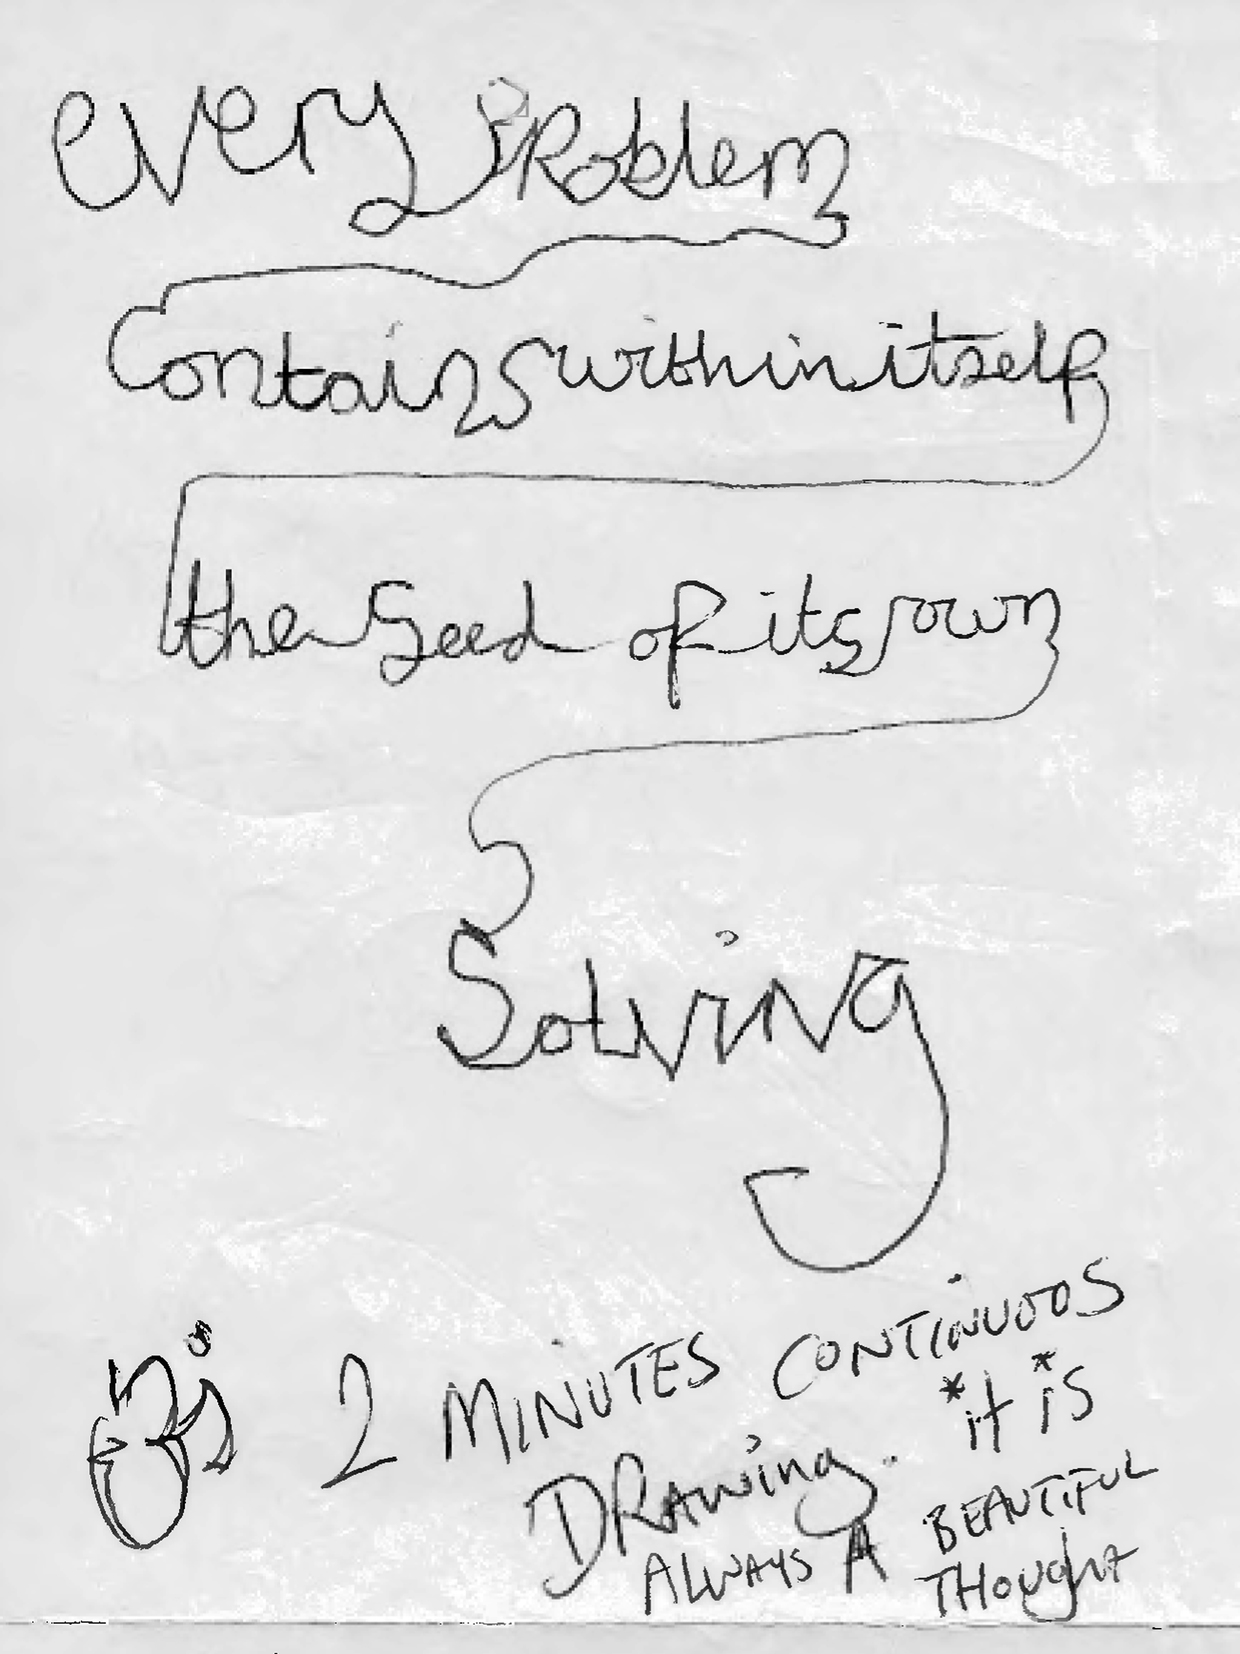 every Problem
Contains within itself
the Seed of its own
Solving
2 MINUTES CONTINUOUS
DRAWING.
*it is*
ALWAYS A BEAUTIFUL
THOUGHT